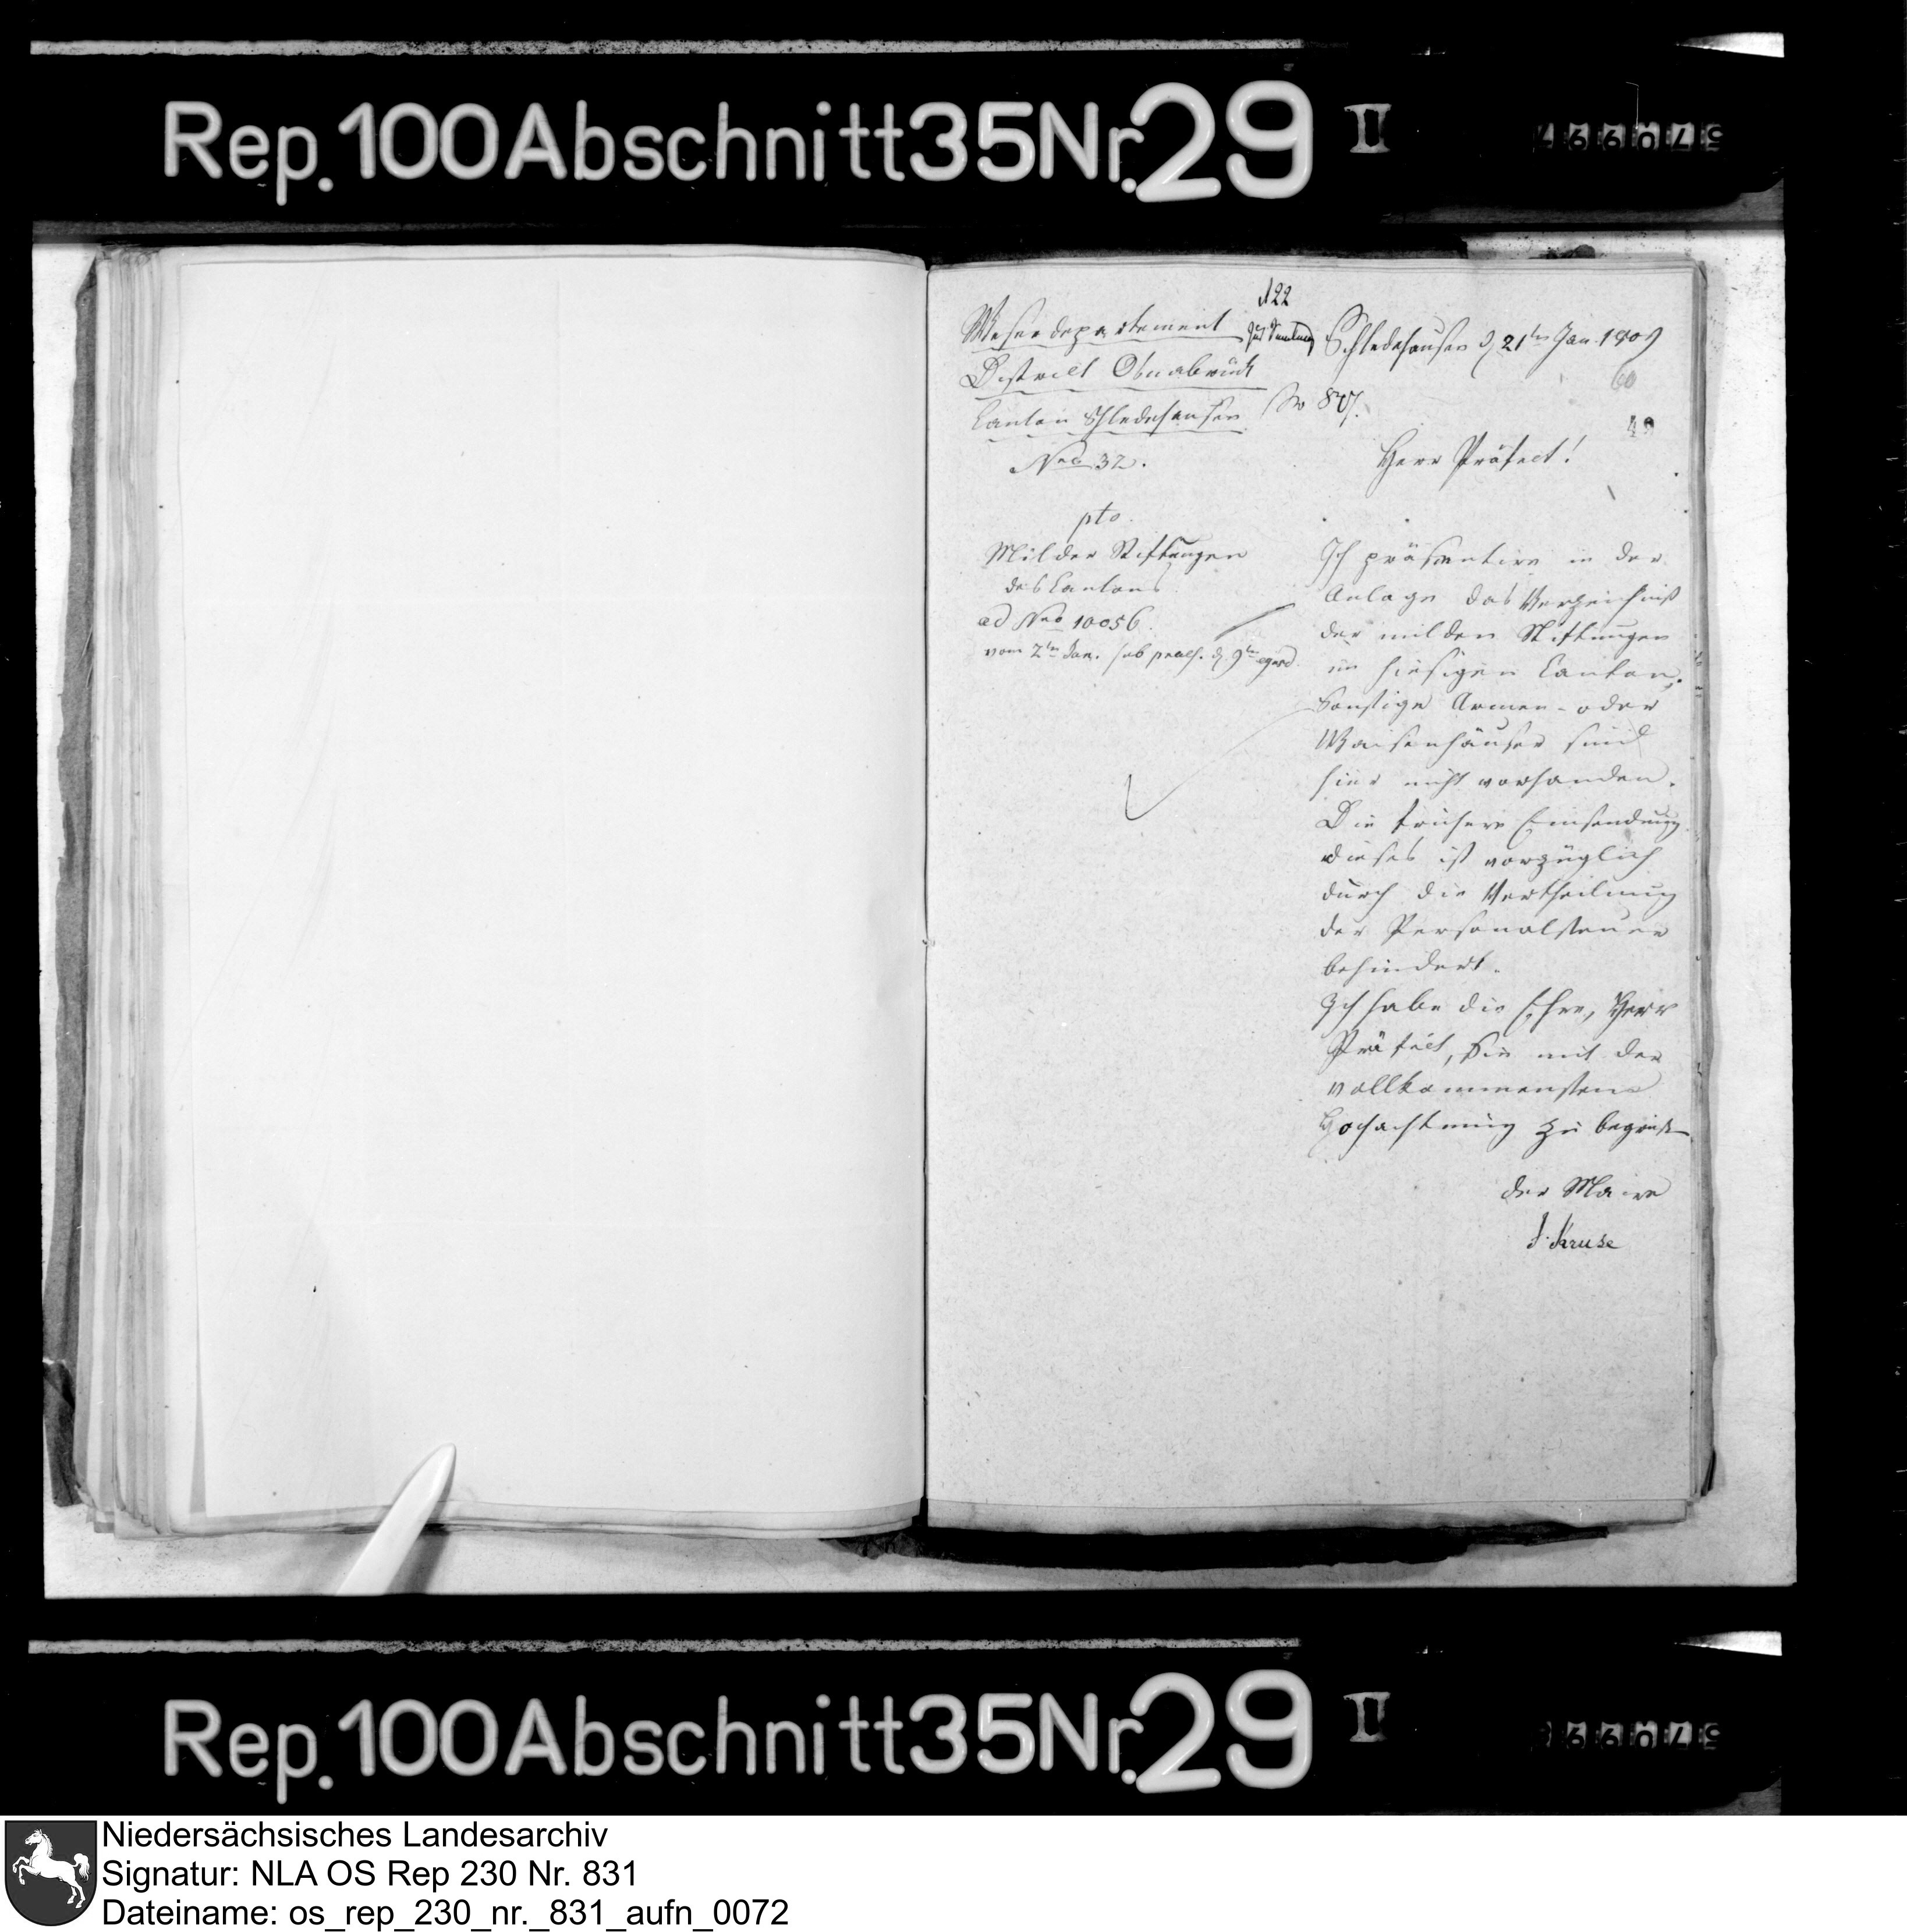 Rep. 100 Abschnitt 35 Nr. 29 II
N 22
Weserdepartement
District Osnabrück
Canton Schledehausen
Nro 32.
Schledehausen d 21ten Jan. 1809
60
No 87.
49
Herr Präfect!
pto.
Milder Stiftungen
des Cantons
ad Nro 10056.
vom 2ten Jan. sub praes. d. 9ten
Ich präsentire in der
Anlage das Verzeichniß
der milden Stiftungen
im hiesigen Canton.
Sonstige Armen- oder
Waisenhäuser sind
hier nicht vorhanden.
Die frühere Einsendung
dieses ist vorzüglich
durch die Vertheilung
der Personalsteuer
behindert.
Ich habe die Ehre, Herr
Präfect, Sie mit der
vollkommensten
Hochachtung zu begrüßen
der Maire
J. Kruse
Rep. 100 Abschnitt 35 Nr. 29 II
Niedersächsisches Landesarchiv
Signatur: NLA OS Rep 230 Nr. 831
Dateiname: os_rep_230_nr._831_aufn_0072